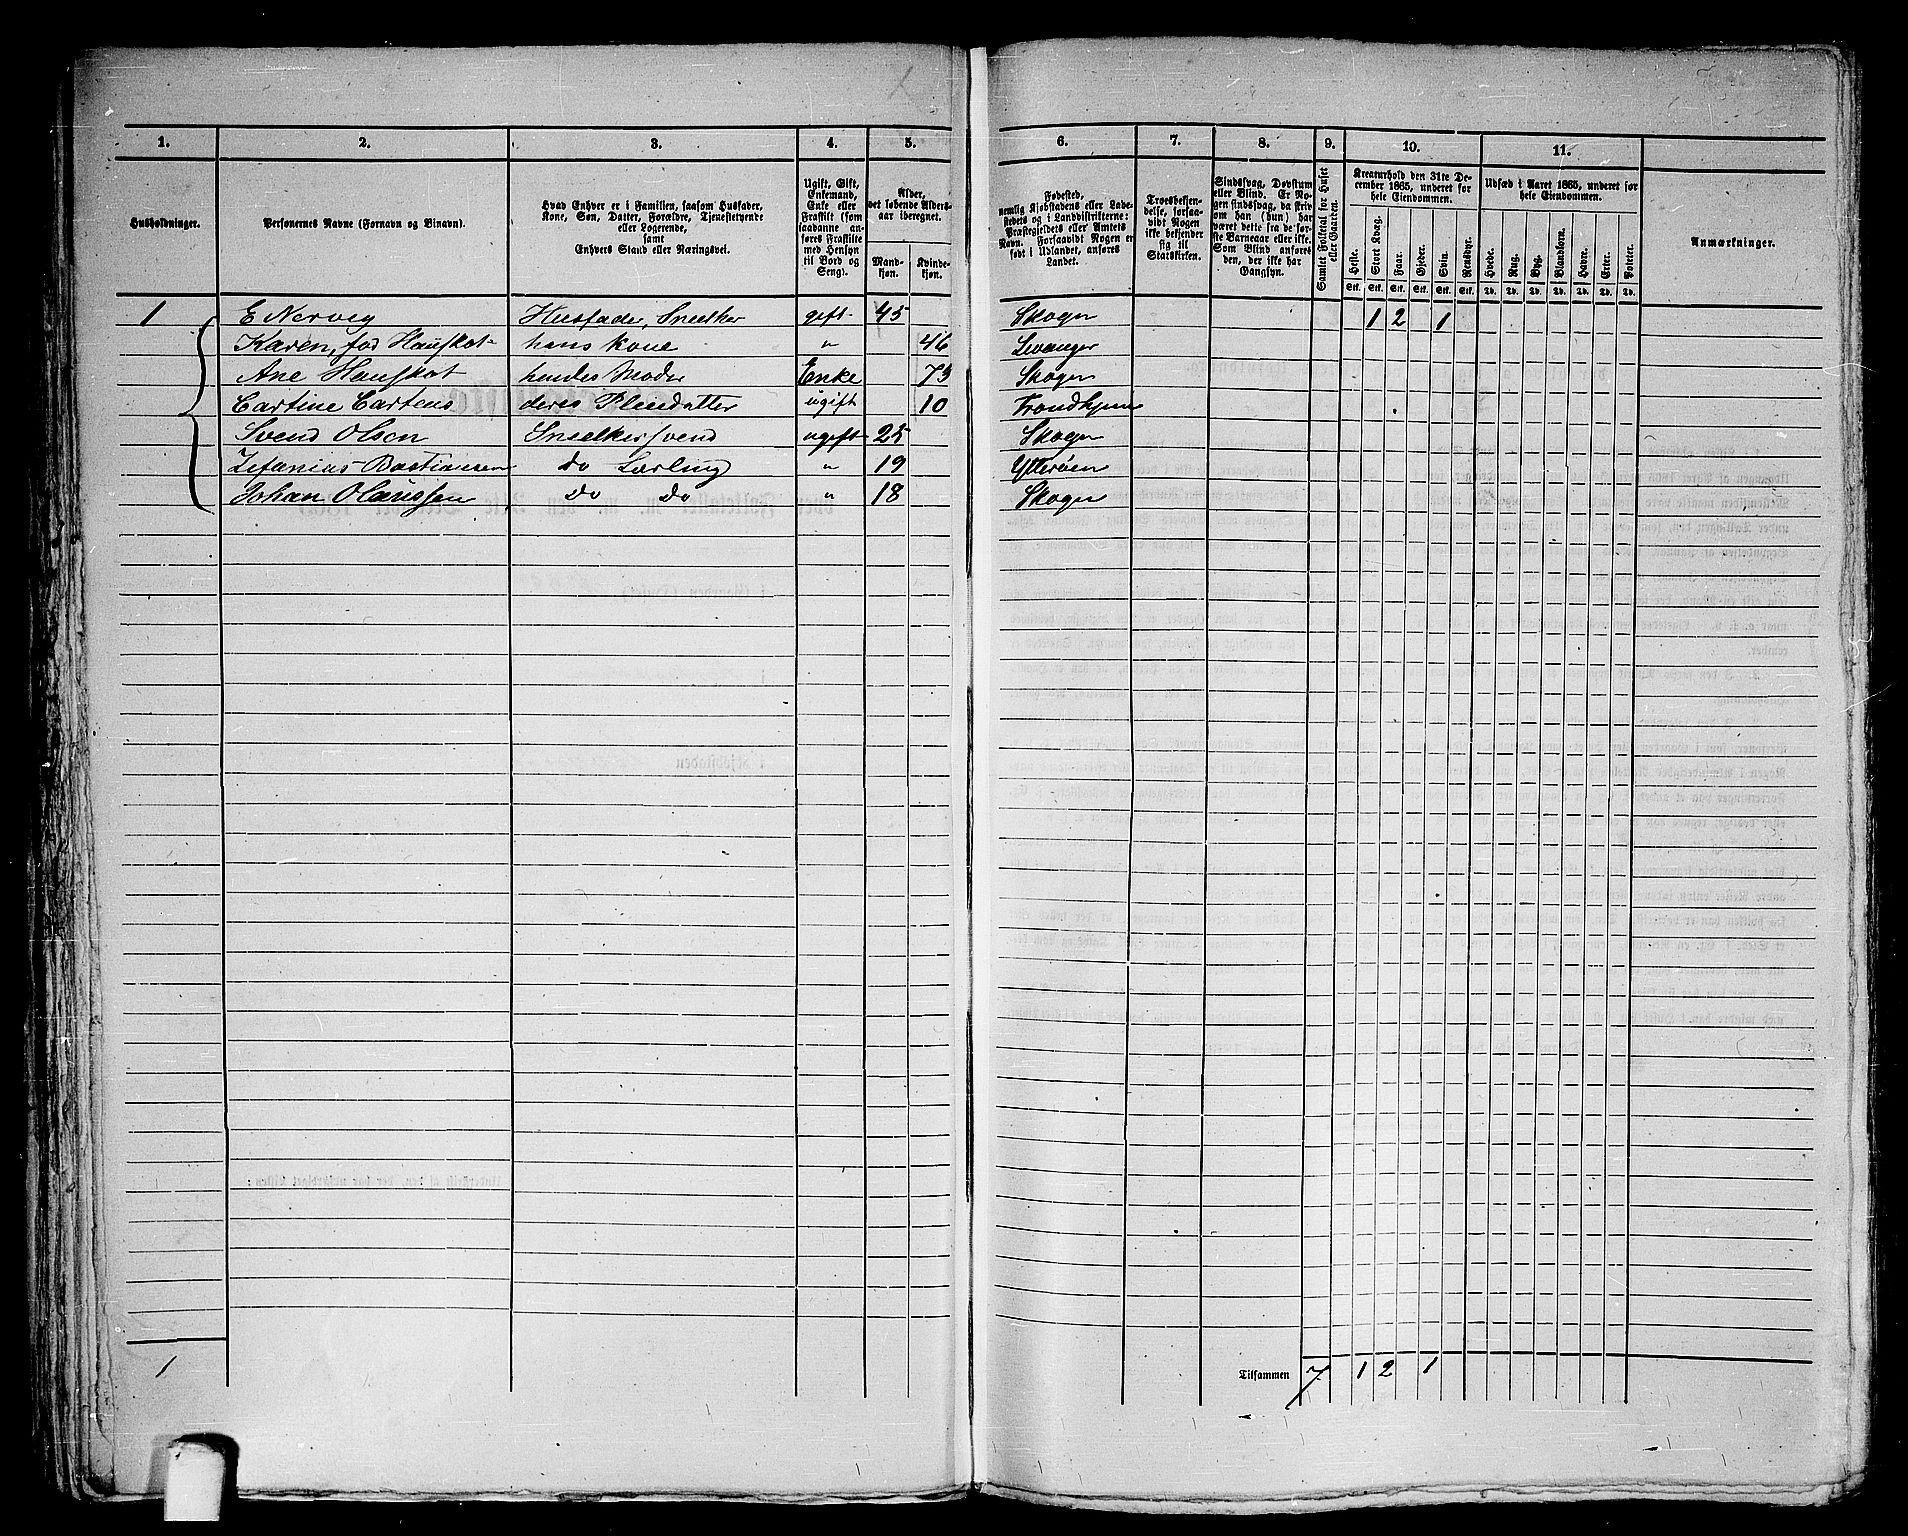 1. 2. 3. 4. 5. 6. 7. 8. 9. 10. 11.
Husholdninger.
Personernes Navne (Fornavn og Binavn).
Hvad Enhver er i Familien, saasom Husfader,
Kone, Søn, Datter, Forældre, Tjenestetyende
eller Logerende,
samt
Enhvers Stand eller Næringsvei.
Ugift, Gift,
Enkemand,
Enke eller
Fraskilt (som
saadanne an-
føres Fraskilte
med Hensyn
til Bord og
Seng).
Alder,
det løbende Alders-
aar iberegnet.
Mand-
kjøn.
Kvinde-
kjøn.
Fødested,
nemlig Kjøbstadens eller Lade-
stedets og i Landdistrikterne:
Præstegjeldets eller Amtets
Navn. Forsaavidt Nogen er
født i Udlandet, anføres
Landet.
Troesbekjen-
delse, forsaa-
vidt Nogen
ikke bekjender
sig til
Statskirken.
Sindssvag, Døvstum
eller Blind. Er No-
gen sindssvag, da skriv
om han (hun) har
været dette fra de før-
ste Barneaar eller ikke.
Som Blind anføres
den, der ikke har
Gangsyn.
Samlet Folketal for Huset
eller Gaarden.
Kreaturhold den 31te De-
cember 1865, underet for
hele Eiendommen.
Heste. Stort Kvæg. Faar. Gjeder. Svin. Rensdyr.
Stk. Stk. Stk. Stk. Stk. Stk.
Udsæd i Aaret 1865, underet for
hele Eiendommen.
Hvede. Rug. Byg. Blandkorn. Havre. Erter. Poteter.
Td. Td. Td. Td. Td. Td. Td.
Anmærkninger.
1 E Nervig Husfader, Sneelker gift 45 Skogn 1 2 1
Karen, fød Hauskot hans Kone " 46 Levanger
Ane Hauskot hendes Moder Enke 73 Skogn
Cartine Cartens deres Pleiedatter ugift 10 Trondhjem
Svend Olsen Sneelkersvend ugift 25 Skogn
Zefanias Bastiansen do Lærling " 19 Ytterøen
Johan Olaussen do do " 18 Skogn
1 Tilsammen 7 1 2 1